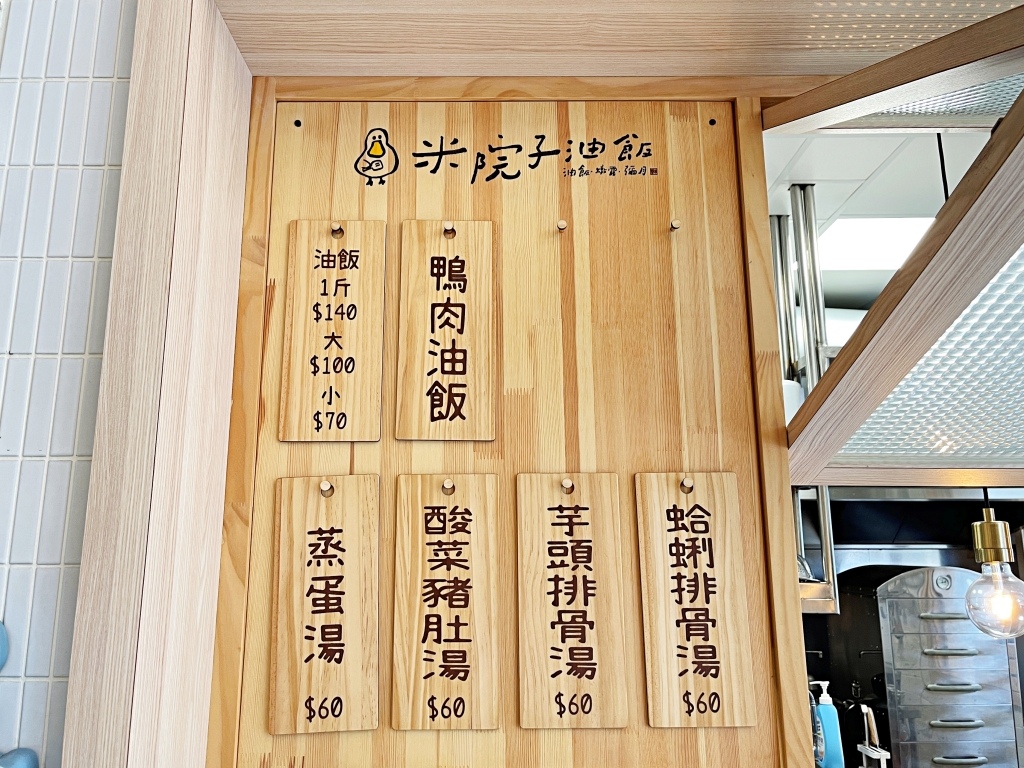 米院子油飯
油飯
1斤
$140
大
$100
小
$70
鴨肉油飯
蒸蛋湯
$60
酸菜豬肚湯
$60
芋頭排骨湯
$60
蛤蜊排骨湯
$60